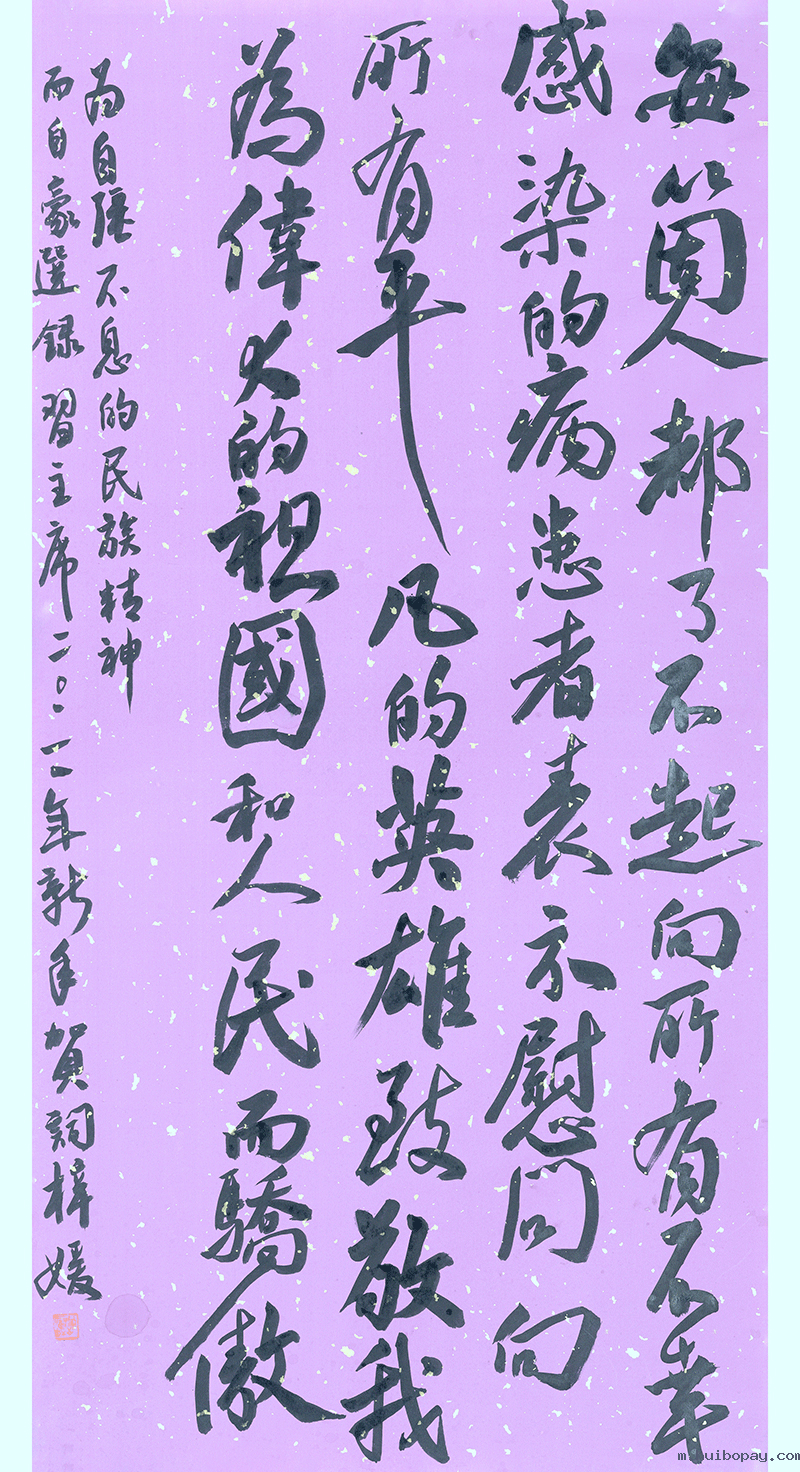 每箇人都了不起向所有不幸
感染的病患者表示慰問向
所有平凡的英雄致敬我
為偉大的祖國和人民而驕傲
為自強不息的民族精神
而自豪選録習主席二〇二一年新年賀詞梓媛
m.huibopay.com